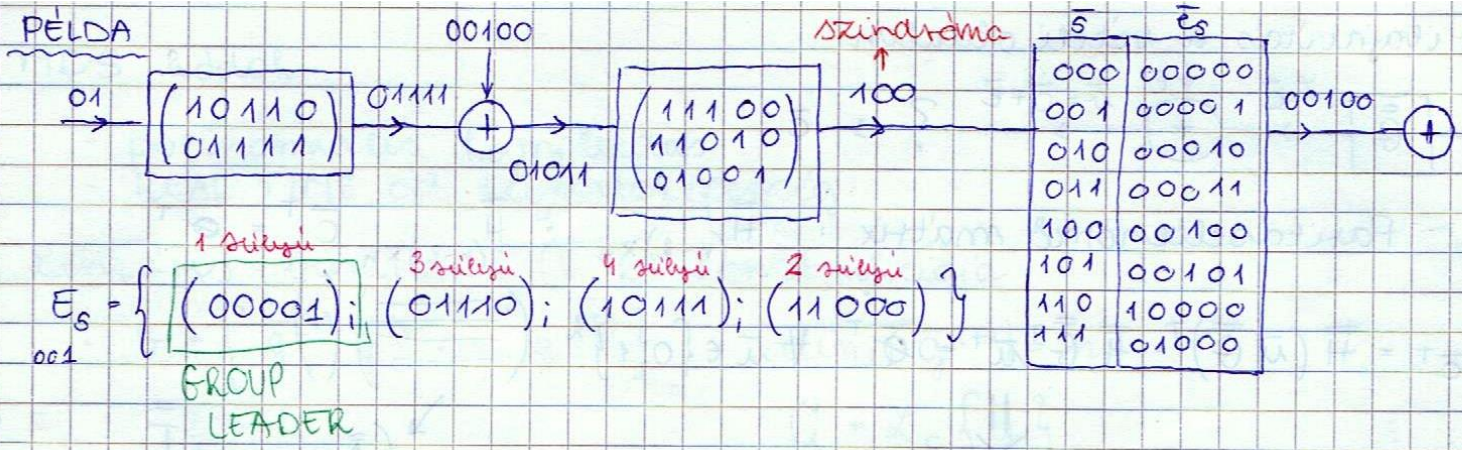 PÉLDA
00100
szindróma
s̅ e̅s
01
(10110
01111)
01111
+
01011
(11100
11010
01001)
100
000 00000
001 00001
010 00010
011 00011
100 00100
101 00101
110 10000
111 01000
00100
+
1 súlyú 3 súlyú 4 súlyú 2 súlyú
Es = { (00001); (01110); (10111); (11000) }
001
GROUP
LEADER